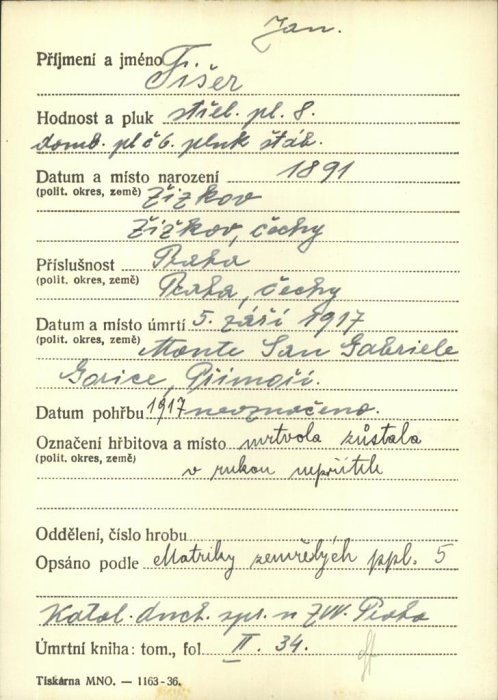 Jan.
Příjmení a jméno Fišer
Hodnost a pluk střel. pl. 8.
domb. pl č 6. pluk štáb.
Datum a místo narození 1891
(polit. okres, země) Žižkov
Žižkov, čechy
Příslušnost Praha
(polit. okres, země) Praha, čechy
Datum a místo úmrtí 5. září 1917
(polit. okres, země) Monte San Gabriele
Gorice, Přímoří.
Datum pohřbu 1917 neoznačeno.
Označení hřbitova a místo mrtvola zůstala
(polit. okres, země) v rukou nepřítele
Oddělení, číslo hrobu
Opsáno podle Matriky zemřelých ppl. 5
Katol. duch. spr. u ZVV. Praha
Úmrtní kniha: tom., fol. II. 34.
Tiskárna MNO. — 1163-36.